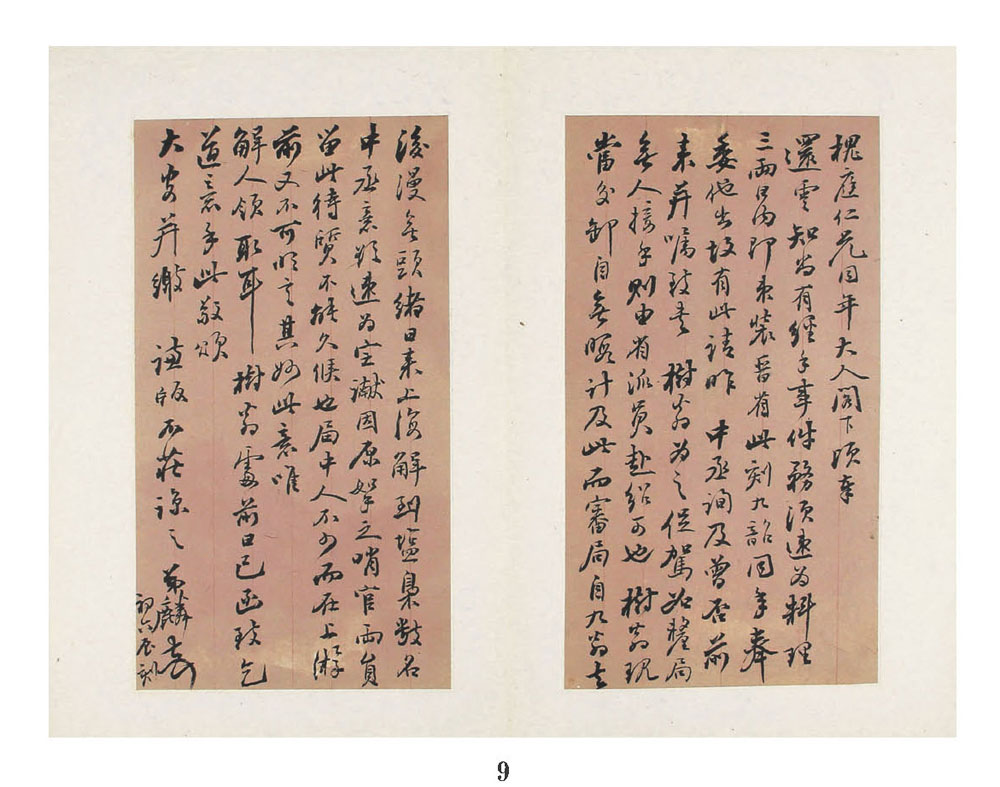 槐庭仁兄同年大人閣下頃奉
還雲知尚有經手事件務須速為料理
三兩日內即束裝晉省此刻九韶同年奉
委他出故有此請昨　中丞詢及曾否前
來并囑致意　樹翁為之促駕如釐局
無人接手則由省派員赴紹可也樹翁現
當交卸自無暇計及此而審局自九翁去
後漫無頭緒日來上海解到鹽梟數名
中丞意欲速為定讞因原拏之哨官兩員
留此待質不能久候也局中人不少而在上游
前又不可明言其妙此意唯
解人領取耳　樹翁處前日已函致乞
道意手此敬頌
大安并繳　謙版不莊諒之　弟麟
初六辰刻
9